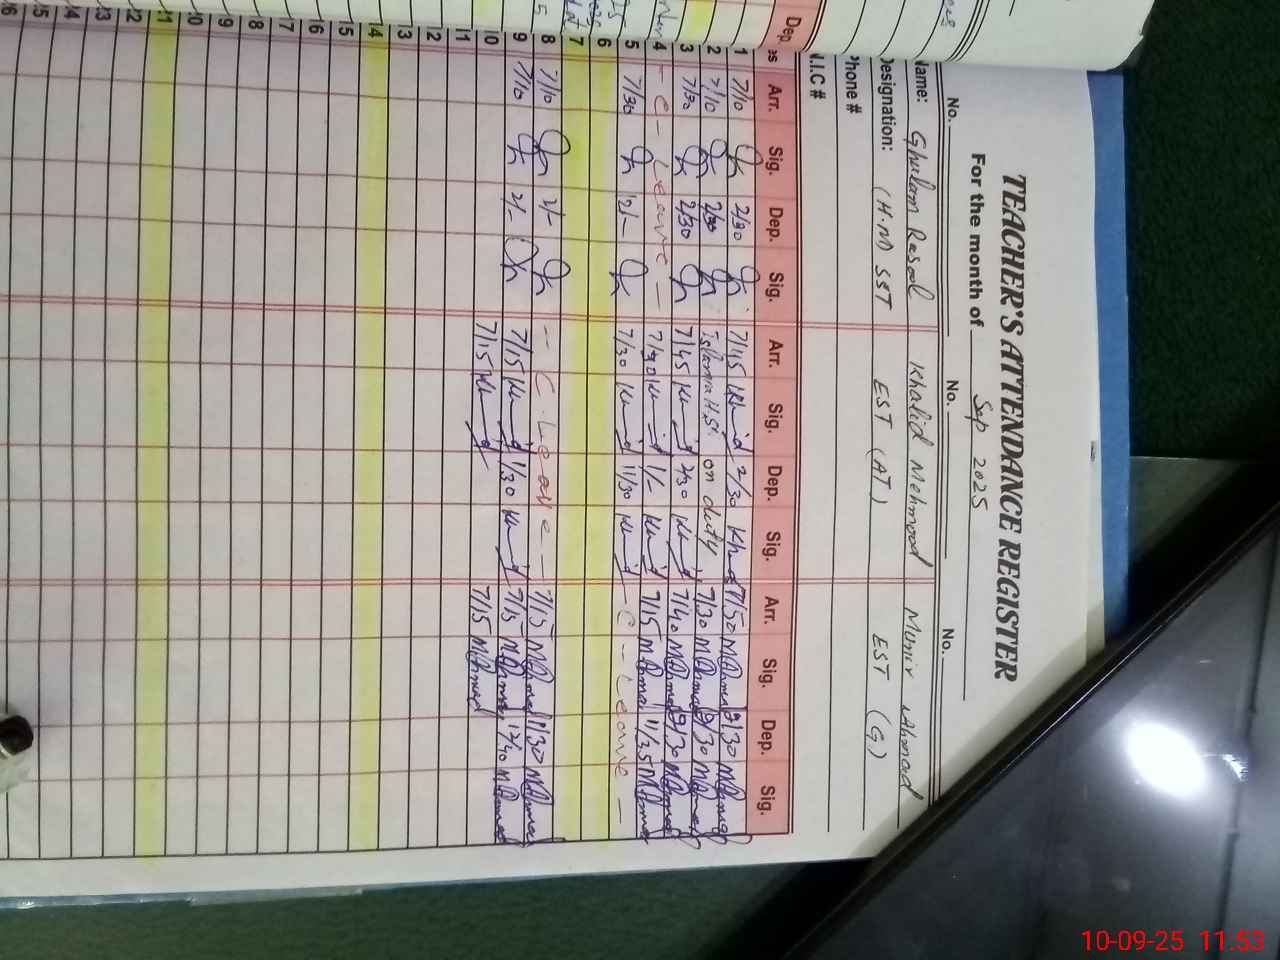 TEACHER'S ATTENDANCE REGISTER
For the month of Sep 2025
No. No. No.
Name: Ghulam Rasool Khalid Mehmood Munir Ahmad
Designation: (H.M SST EST (AT) EST (G.)
Phone #
N.I.C #
Dep
es Arr. Sig. Dep. Sig. Arr. Sig. Dep. Sig. Arr. Sig. Dep. Sig.
1 7/10 2/30 7/45 2/30 7/50 M.Ahmed 2/30 M.Ahmed
2 7/10 2/30 Islamia H.S on duty 7/30 M.Ahmed 2/30 M.Ahmed
3 7/30 2/30 7/45 2/30 7/40 M.Ahmed 2/30 M.Ahmed
4 - C - Leave - 7/30 1/- 7/15 M.Ahmed 11/35 M.Ahmed
5 7/30 12/- 7/30 11/30 - C - Leave -
6
7
8 7/10 2/- - C. Leave - 7/15 M.Ahmed 11/30 M.Ahmed
9 7/10 2/- 7/15 1/30 7/15 M.Ahmed 12/40 M.Ahmed
10 7/15 7/15 M.Ahmed
11
12
13
14
15
16
17
18
19
20
21
22
23
24
25
26
10-09-25 11.53